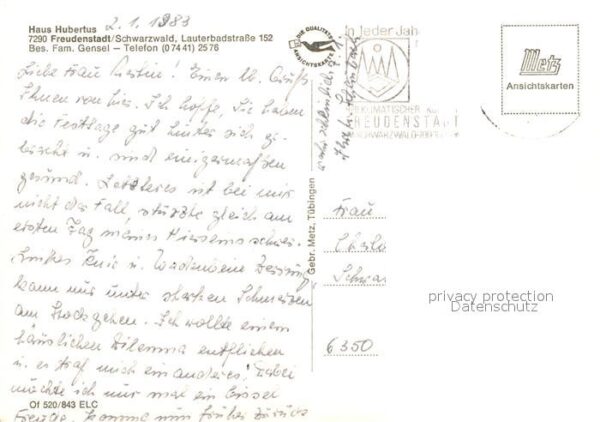 2.1.1983
Haus Hubertus
7290 Freudenstadt/Schwarzwald, Lauterbadstraße 152
Bes. Fam. Gensel – Telefon (07441) 2576
Liebe Frau ! Einen lb. Gruß
Ihnen von hier. Ich hoffe, Sie haben
die Festtage gut hinter sich ge-
bracht u. sind einigermaßen
gesund. Letzteres ist bei mir
nicht der Fall, stürzte gleich am
ersten Tag meines Hierseins schwer.
Linkes Knie u. Wadenbein Zerrung,
kann nur unter starken Schmerzen
am Stock gehen. Ich wollte einem
häuslichen Dilemma entfliehen
u. es traf mich ein anderes! Dabei
möchte ich nur mal ein bissel
Freude. Komme nun früher zurück
Of 520/843 ELC
DIE QUALITÄTS
ANSICHTSKARTE
in jeder Jah
HEILKLIMATISCHER KU
FREUDENSTADT
SCHWARZWALD 700
wahrscheinlich
Gebr. Metz, Tübingen
Metz
Ansichtskarten
Frau
Charlo
Schwar
6350
privacy protection
Datenschutz